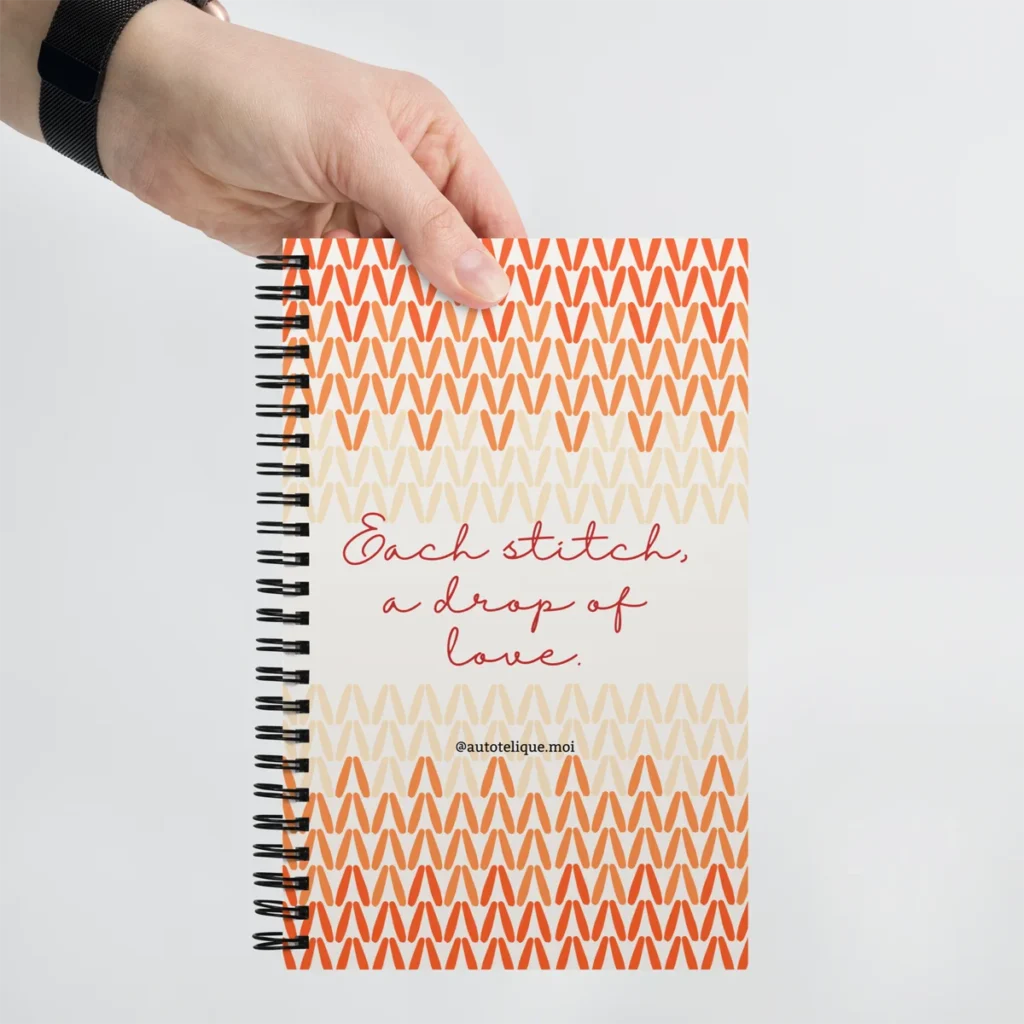 Each stitch,
a drop of
love.
@autotelique.moi